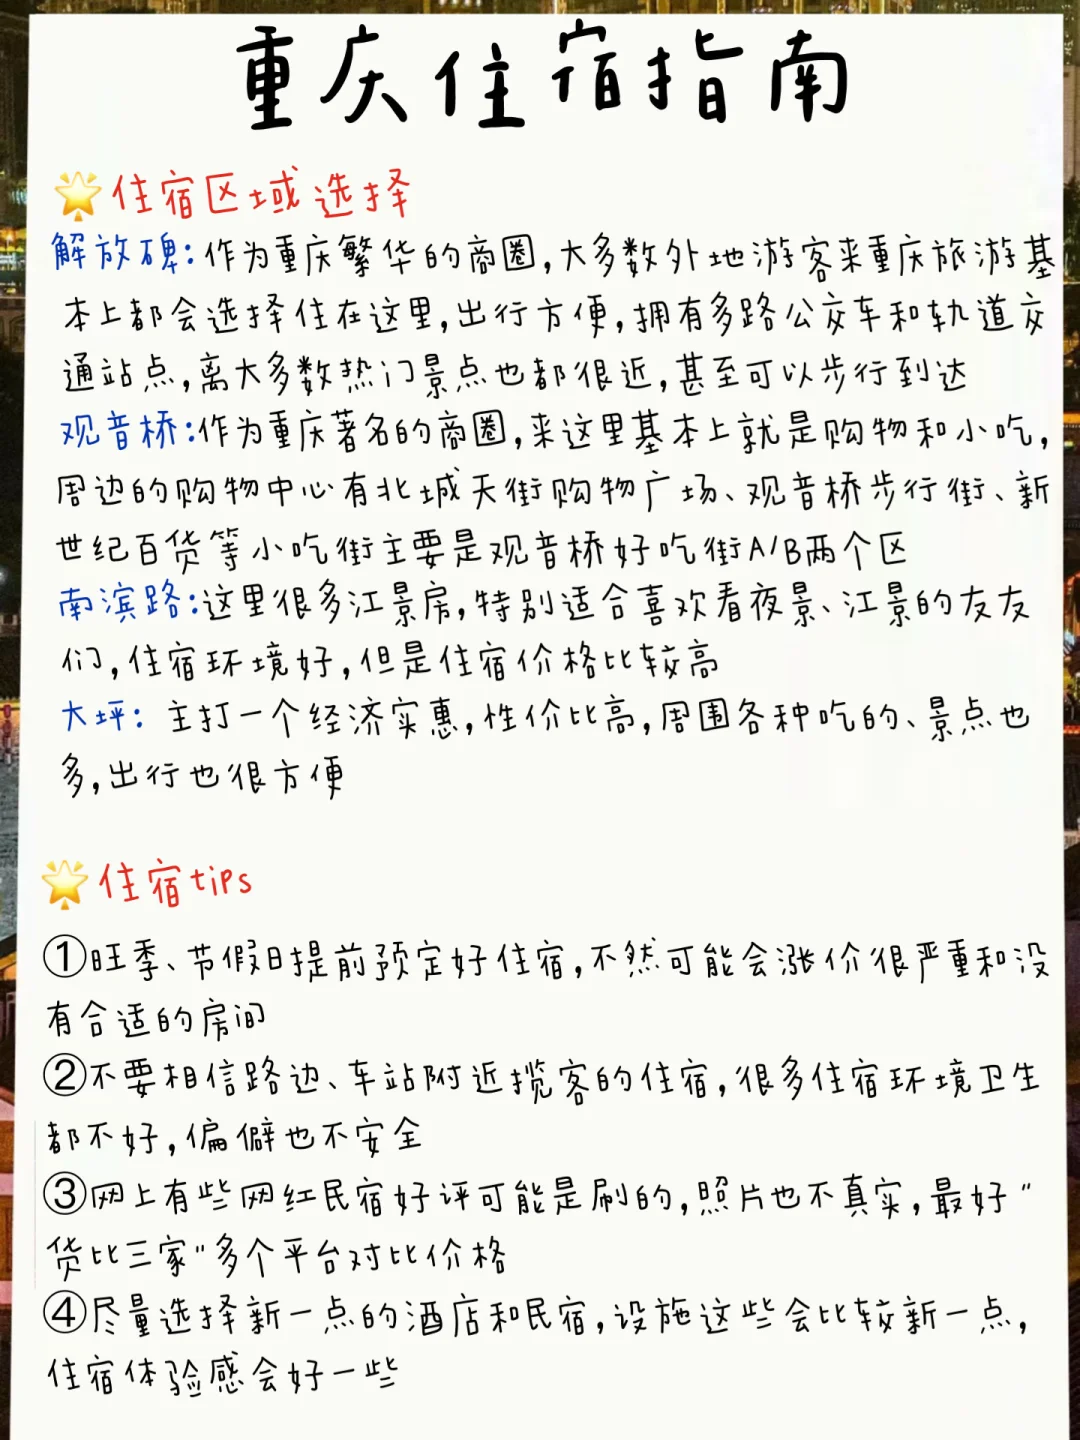 重庆住宿指南
住宿区域选择
解放碑:作为重庆繁华的商圈,大多数外地游客来重庆旅游基
本上都会选择住在这里,出行方便,拥有多路公交车和轨道交
通站点,离大多数热门景点也都很近,甚至可以步行到达
观音桥:作为重庆著名的商圈,来这里基本上就是购物和小吃,
周边的购物中心有北城天街购物广场、观音桥步行街、新
世纪百货等小吃街主要是观音桥好吃街A/B两个区
南滨路:这里很多江景房,特别适合喜欢看夜景、江景的友友
们,住宿环境好,但是住宿价格比较高
大坪: 主打一个经济实惠,性价比高,周围各种吃的、景点也
多,出行也很方便
住宿tips
①旺季、节假日提前预定好住宿,不然可能会涨价很严重和没
有合适的房间
②不要相信路边、车站附近揽客的住宿,很多住宿环境卫生
都不好,偏僻也不安全
③网上有些网红民宿好评可能是刷的,照片也不真实,最好"
货比三家"多个平台对比价格
④尽量选择新一点的酒店和民宿,设施这些会比较新一点,
住宿体验感会好一些